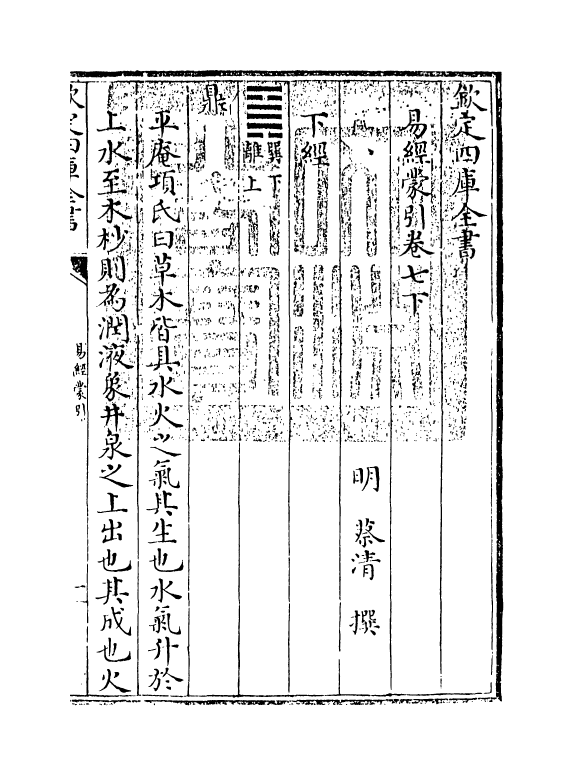 欽定四庫全書
易經蒙引卷七下
明 蔡清 撰
下經
䷱巽下離上
鼎
平庵項氏曰草木皆具水火之氣其生也水氣升於
上水至木杪則為潤液象井泉之上出也其成也火
欽定四庫全書
易經蒙引
一